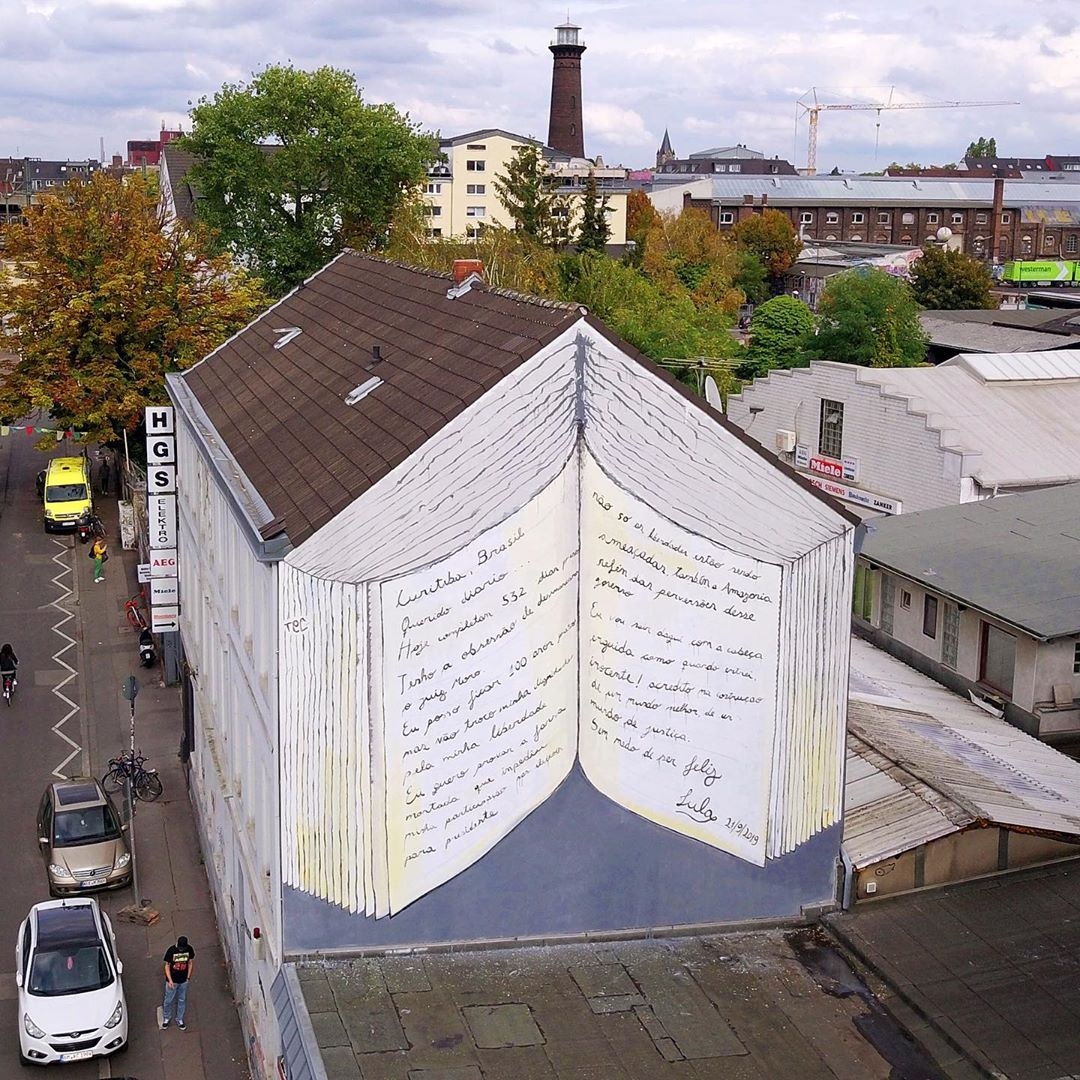 HGS
ELEKTRO
AEG
Miele
TEC
Curitiba, Brasil
Querido diario
Hoje completam 532 dias
Tenho a obsessão de
o juiz Moro
Eu posso ficar 100 anos
mas não troco minha dignidade
pela minha liberdade
Eu quero provar a farsa
montada que impediu
minha participação
para presidente
não so as liberdades estão sendo
ameaçadas, também a Amazonia
refém das perversões desse
governo
Eu vou sair daqui com a cabeça
erguida como quando entrei,
inocente! acredito na construção
de um mundo melhor, de um
mundo de justiça.
Sem medo de ser feliz
Lula 21/9/2019
Miele
SIEMENS Bauknecht ZANKER
westerman